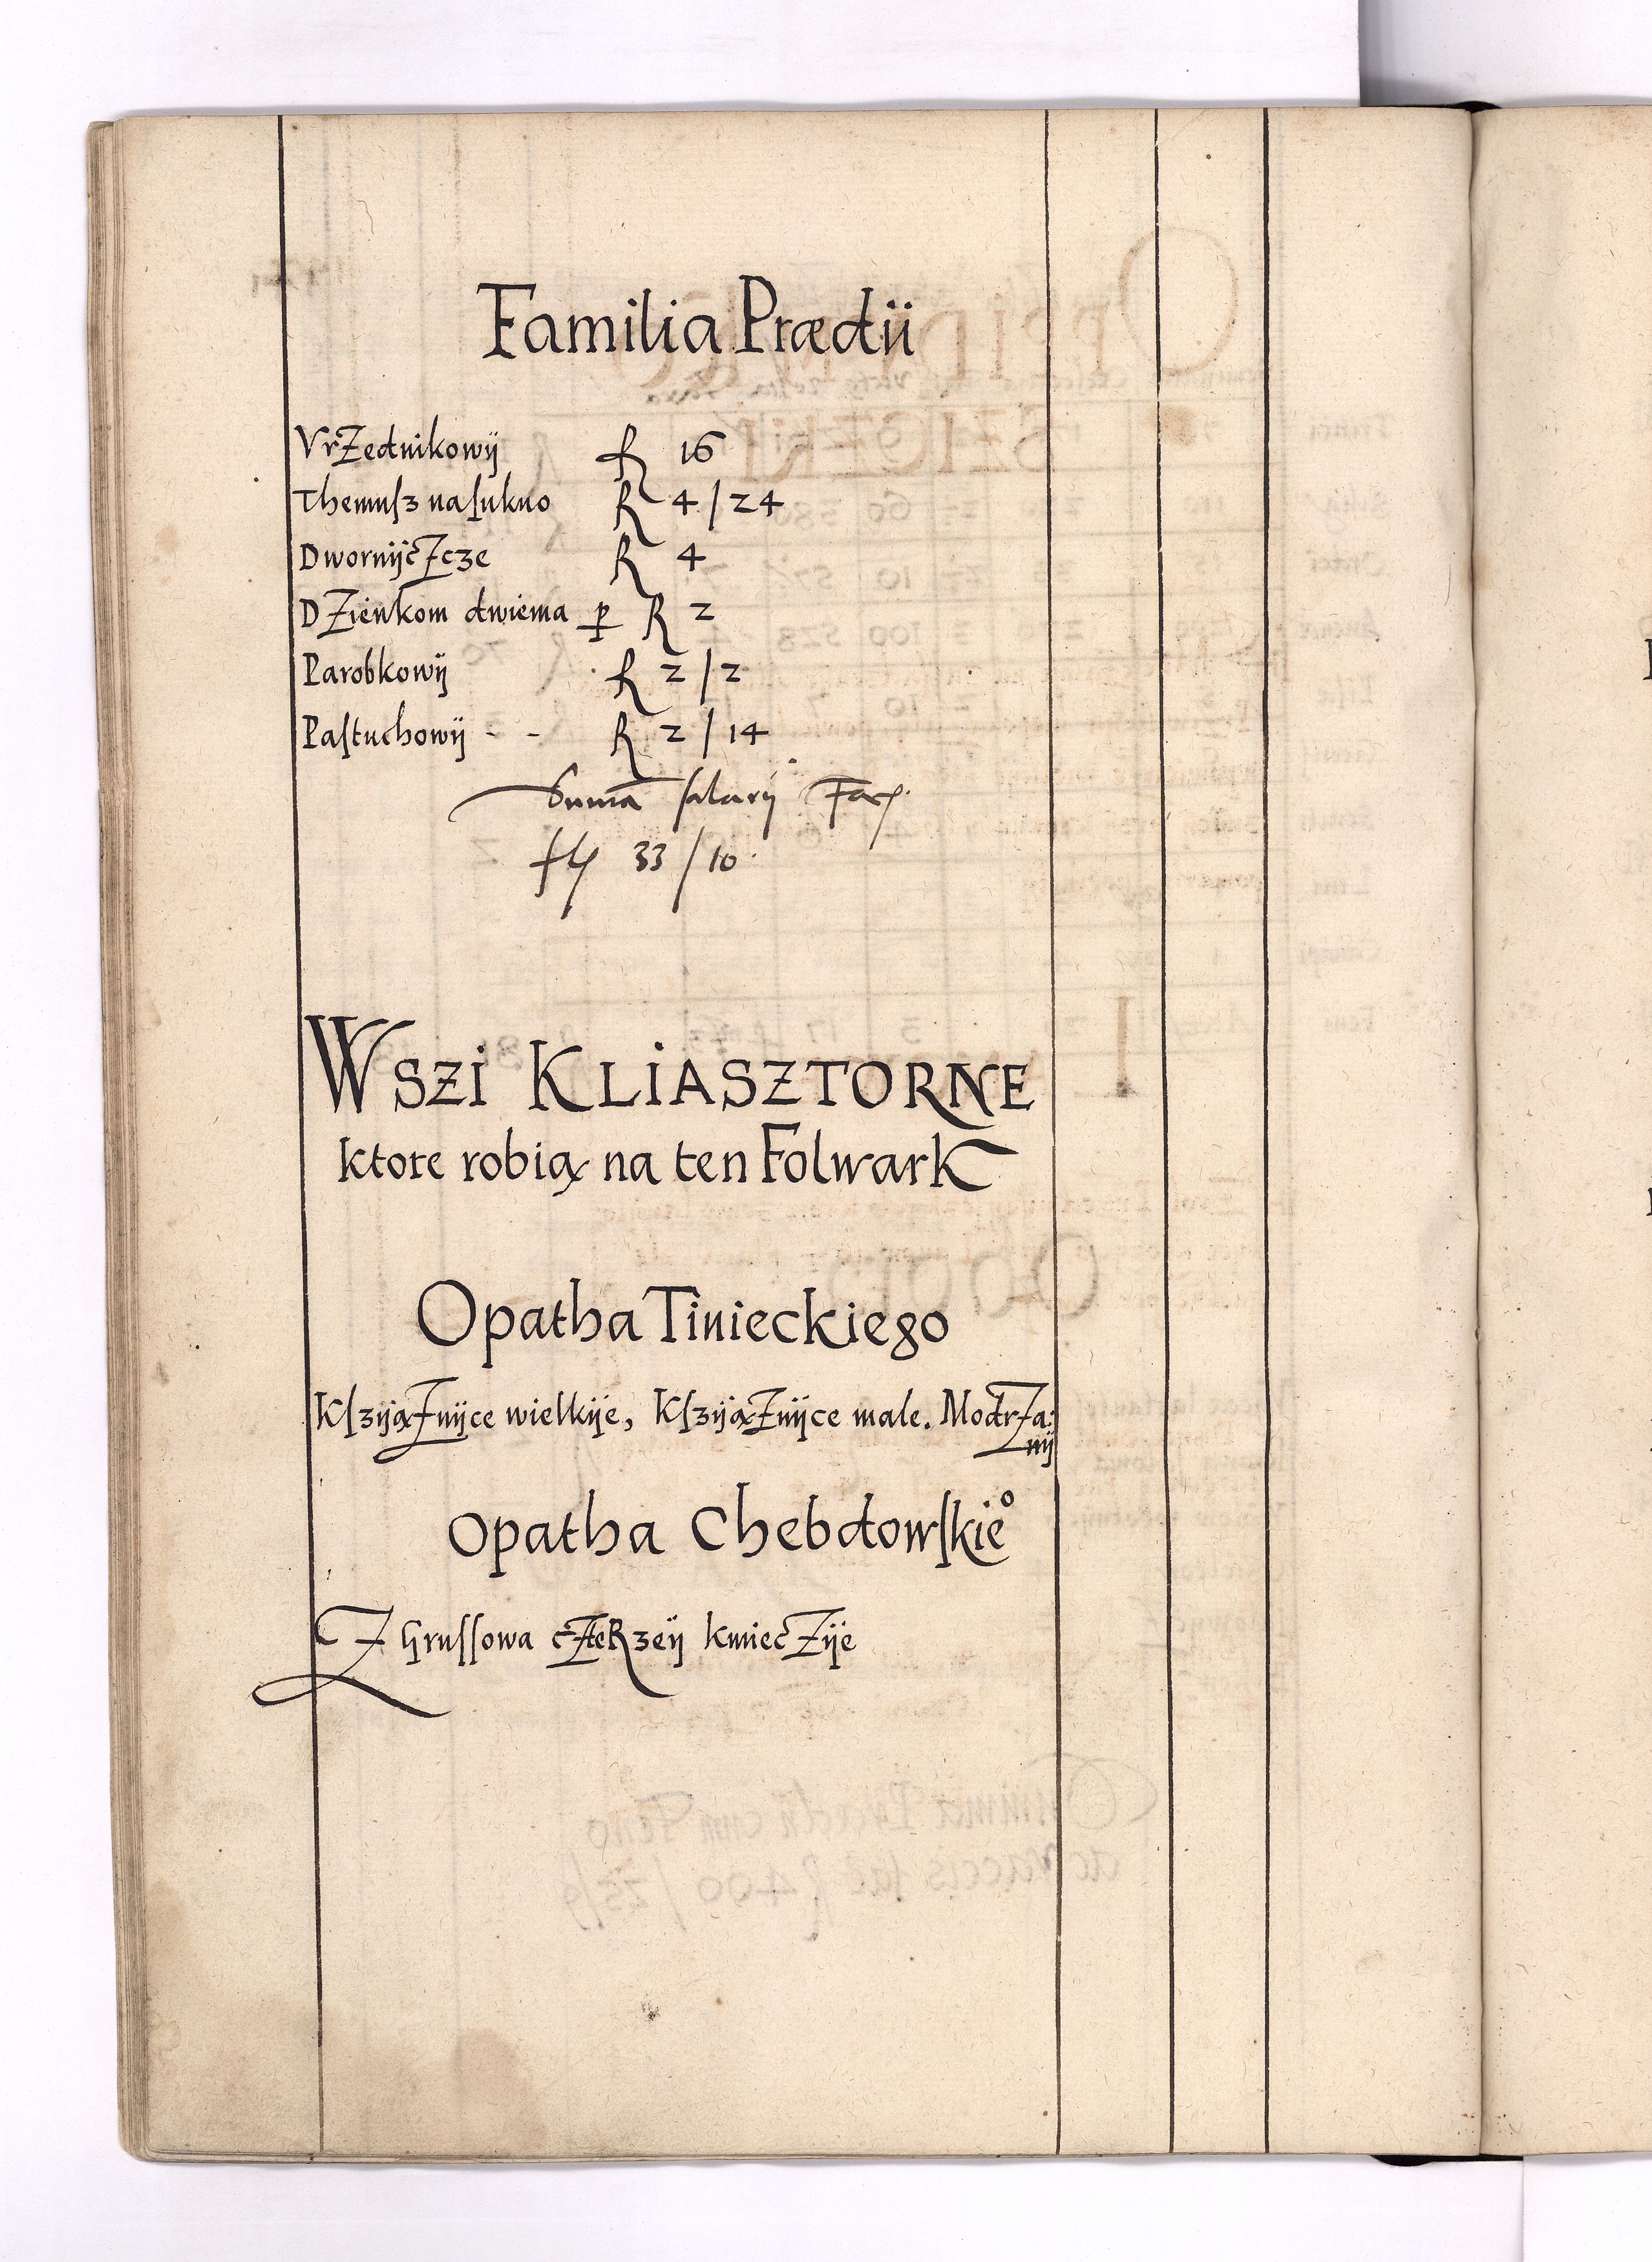 Familia Prædii
VrZednikowÿ R 16
Themuſz naſukno R 4/24
DwornÿcZcze R 4
DZienkom dwiema p R 2
Parobkowÿ R 2/2
Paſtuchowÿ - - R 2/14
Suma ſalarÿ Fac
fl 33/10
WSZI KLIASZTORNE
ktore robią na ten Folwark
Opatha Tinieckiego
KſzÿąZnÿce wielkÿe, KſzÿąZnÿce male. ModrZa:
nÿ
Opatha Chebdowſkieº
Z Gruſſowa cZteRzeÿ kmiecZÿe